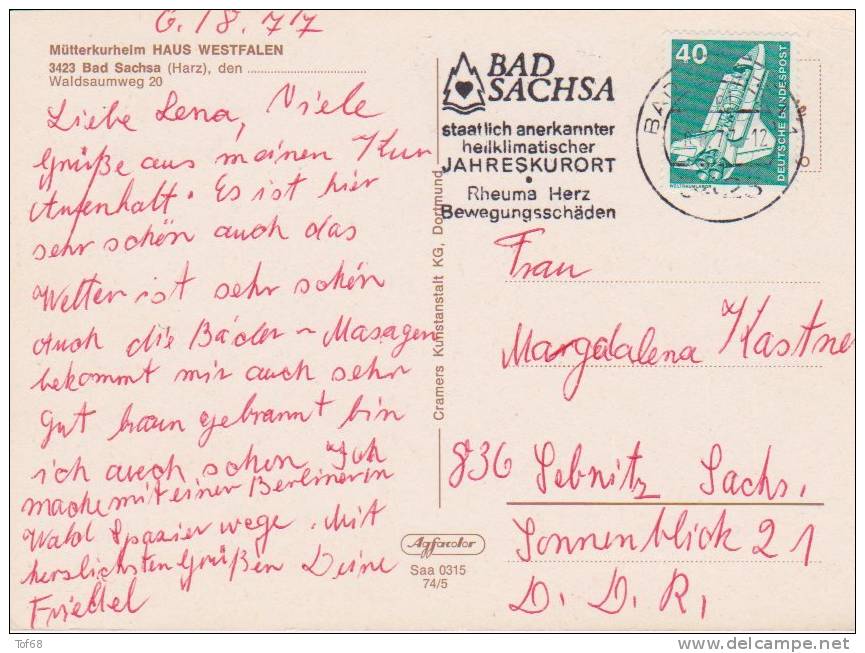 6./8.77
Mütterkurheim HAUS WESTFALEN
3423 Bad Sachsa (Harz), den
Waldsaumweg 20
Liebe Lena, Viele
grüße aus meinen Kur
Aufenhalt. Es ist hier
sehr schön auch das
Wetter ist sehr schön
Auch die Bäder - Masagen
bekommt mir auch sehr
gut braun gebrannt bin
ich auch schon Ich
mache mit einer Berlinerin
Wald Spazier wege. Mit
herslichsten Grüßen Deine
Friedel
Cramers Kunstanstalt KG, Dortmund
BAD
SACHSA
staatlich anerkannter
heilklimatischer
JAHRESKURORT
•
Rheuma Herz
Bewegungsschäden
40
DEUTSCHE BUNDESPOST
WELTRAUMLABOR
BAD
12
3423
Frau
Margdalena Kastner
836 Sebnitz Sachs.
Sonnenblick 21
D. D. R.
Agfacolor
Saa 0315
74/5
Tof68
www.delcampe.net